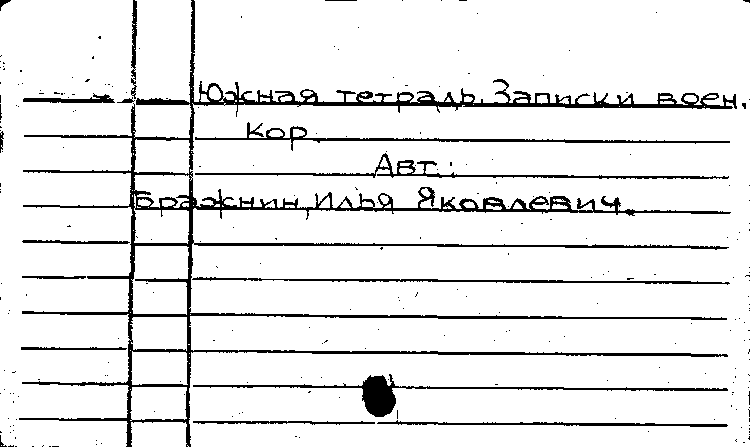 Южная тетрадь. Записки воен.
кор.
Авт.:
Бражнин, Илья Яковлевич.